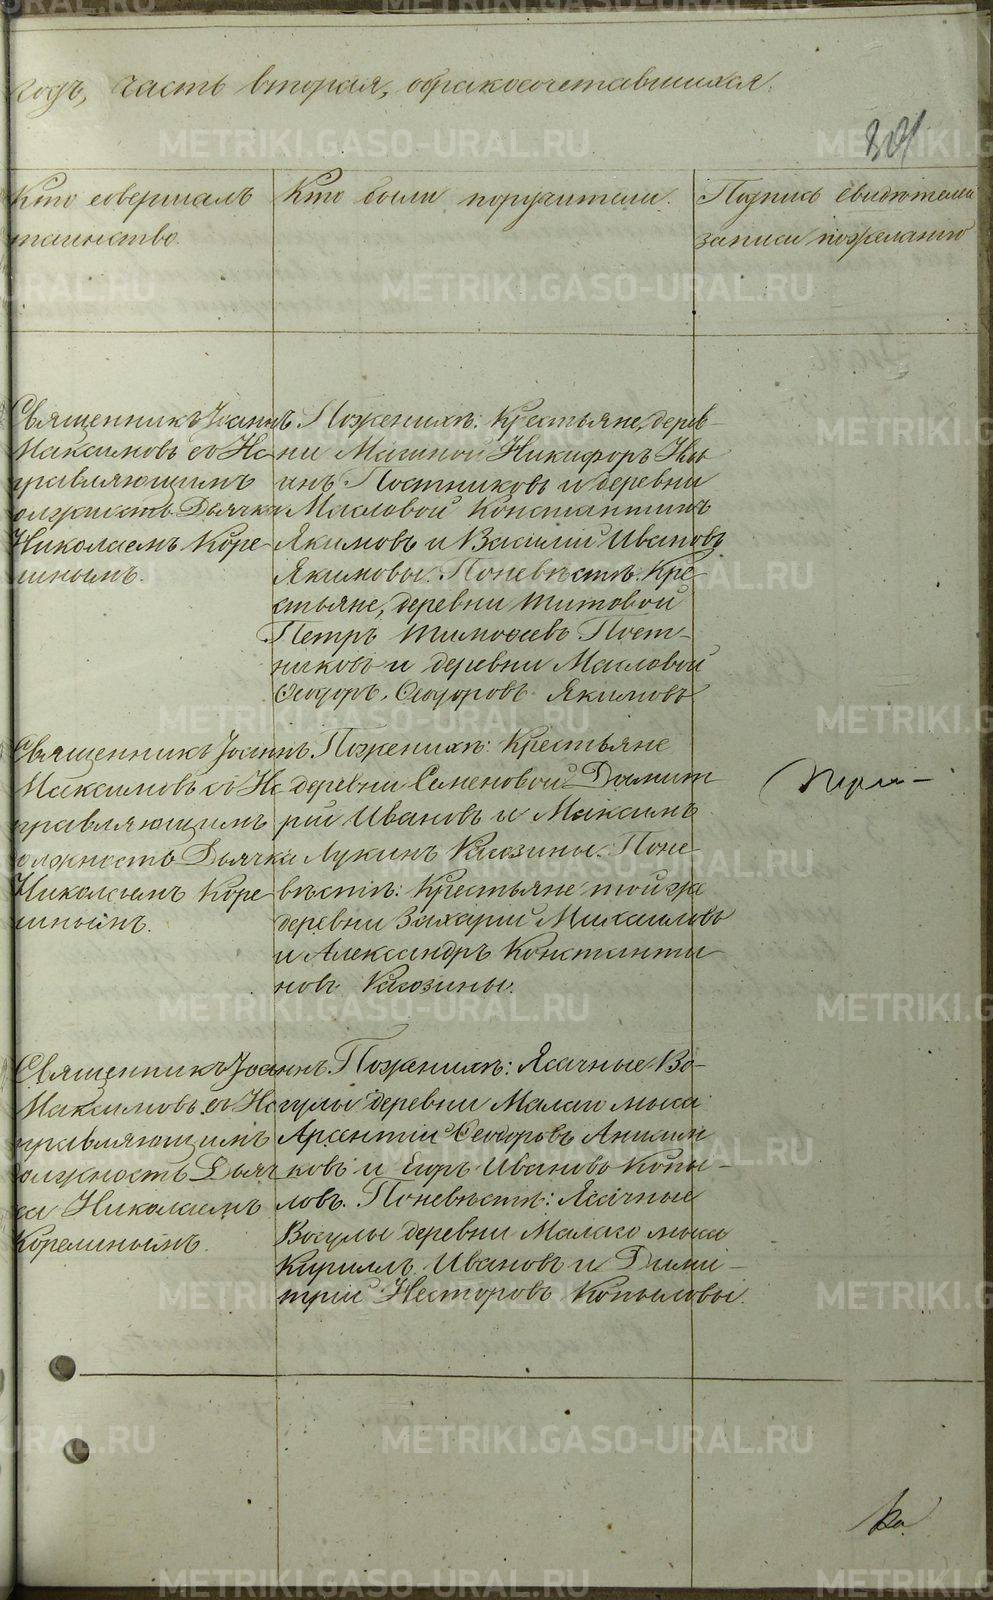 годъ, часть вторая, о бракосочетавшихся.
301
Кто совершалъ
таинство.
Кто были поручители.
Подпись свидѣтелей
записи по желанію
Священникъ Іоаннъ
Максимовъ съ Ис
правляющимъ
олжность Дьячка
Николаемъ Коре
инымъ.
По женихѣ: Крестьяне, дерев-
ни Мачиной Никифоръ Ива
инъ Постниковъ и деревни
Масловой Константинъ
Якимовъ и Василій Ивановъ
Якимовы. По невѣстѣ: Кре
стьяне, деревни Титовой
Петръ Тимоѳеевъ Пост-
никовъ и деревни Масловой
Ѳеодоръ Ѳеодоровъ Якимовъ.
Священникъ Іоаннъ
Максимовъ съ Ис
правляющимъ
олжность Дьячка
Николаемъ Коре
инымъ.
По женихѣ: Крестьяне
деревни Семеновой Димит
рій Ивановъ и Максимъ
Лукинъ Казозины. По не
вѣстѣ: Крестьяне той же
деревни Захарій Михаиловъ
и Александръ Константи
новъ Казозины.
При-
Священникъ Іоаннъ
Максимовъ съ Ис
правляющимъ
должность Дьяч
ка Николаемъ
Корелинымъ.
По женихѣ: Ясачные Во-
гулы деревни Малаго мыса
Арсентій Ѳеодоровъ Аники
ковъ и Егоръ Ивановъ Копы-
ловъ. По невѣстѣ: Ясачные
Вогулы деревни Малаго мыса
Кириллъ Ивановъ и Дими-
трій Несторовъ Копыловы.
METRIKI.GASO-URAL.RU